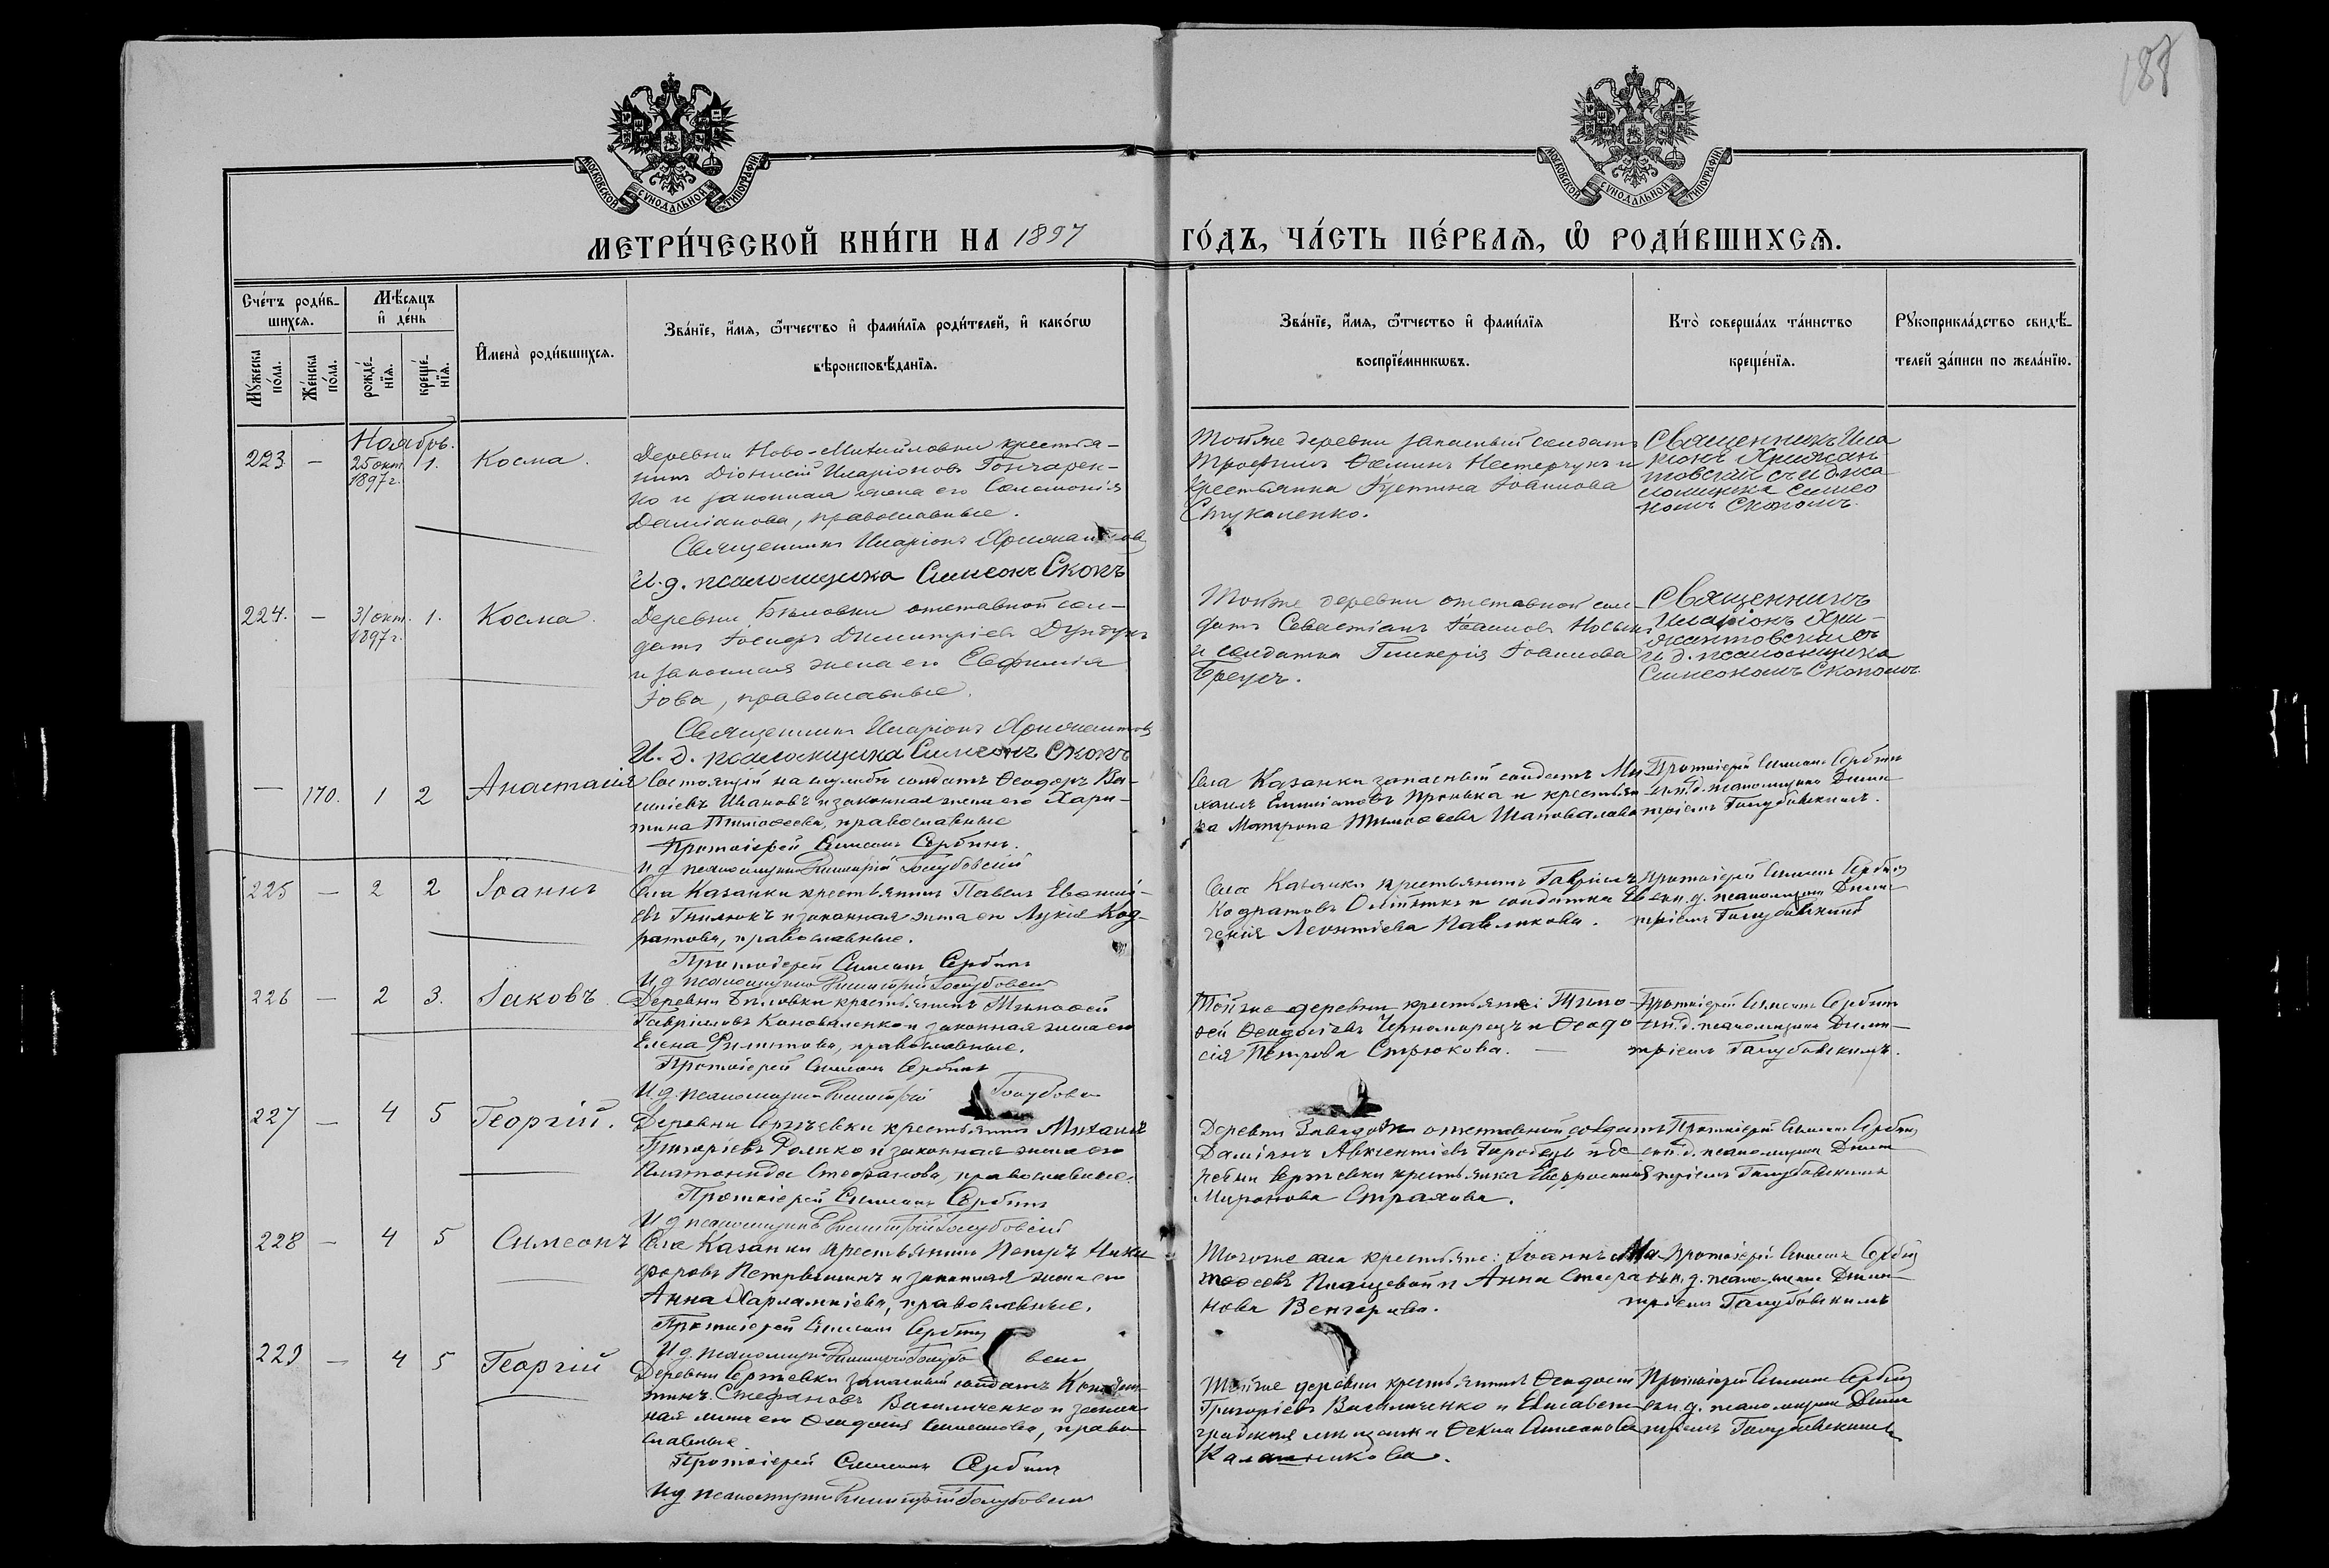 188
МОСКОВСКОЙ СѴНОДАЛЬНОЙ ТИПОГРАФІИ
МОСКОВСКОЙ СѴНОДАЛЬНОЙ ТИПОГРАФІИ
МЕТРИ́ЧЕСКОЙ КНИ́ГИ НА 1897 ГО́ДЪ, ЧА́СТЬ ПЕ́РВАѦ, Ѿ РОДИ́ВШИХСѦ.
Сче́тъ роди́в-
шихся.
Мѣ́сяцъ
и де́нь
Му́жеска по́ла.
Же́нска по́ла.
рожде́-нїя.
креще́-нїя.
Имена̀ роди́вшихся.
Зва́нїе, и́мя, ѻ҆́тчество и фами́лїя роди́телей, и како́гѡ
вѣроисповѣ́данїя.
Зва́нїе, и́мя, ѻ҆́тчество и фами́лїя
воспрїе́мникѡвъ.
Кто̀ соверша́лъ та́инство
креще́нїя.
Рꙋкоприкла́дство свидѣ́-
телей за́писи по жела́нїю.
Ноябрь.
223 — 25 окт. 1897 г. 1. Косма.
Деревни Ново-Михайловки крестья-
нинъ Діонисій Иларіоновъ Гончарен-
ко и законная жена его Соломонія
Даміанова, православные.
Священникъ Иларіонъ
И. д. псаломщика Симеонъ Скопъ
Тойже деревни запасный солдатъ
Трофимъ Ѳоминъ Нестерчукъ и
крестьянка Іустина Іоаннова
Стукаленко.
Священникъ Ила
ріонъ Хрижан
товскій съ и. д. пса
ломщика Симео
номъ Скопомъ.
224. — 31 окт. 1897 г. 1. Косма.
Деревни Бѣловки отставной сол-
датъ Іосифъ Димитріевъ Дундукъ
и законная жена его Евфимія
Іова, православные.
Священникъ Иларіонъ
И. д. псаломщика Симеонъ Скопъ
Тойже деревни отставной сол-
датъ Севастіанъ Іоанновъ Носикъ
и солдатка Гликерія Іоаннова
Бреусъ.
Священникъ
Иларіонъ Хри-
жантовскій съ
и. д. псаломщика
Симеономъ Скопомъ.
— 170. 1 2 Анастасія
Состоящій на службѣ солдатъ Ѳеодоръ Ва-
силіевъ Ивановъ и законная жена его Хари-
тина Тимоѳеева, православные
Протоіерей Симеонъ Сербинъ.
И д псаломщика Димитрій Голубовскій
Села Казанки запасный солдатъ Ми
хаилъ Пронька и крестьян
ка Матрона Тимоѳеева Шаповалова
Протоіерей Симеонъ Сербинъ
и. д. псаломщика Дими
тріемъ Голубовскимъ.
225 — 2 2 Іоаннъ
Села Казанки крестьянинъ Павелъ Евѳимі-
евъ Гнилюкъ и законная жена его Лукія Код-
ратова, православные.
Протоіерей Симеонъ Сербинъ
И д псаломщика Димитрій Голубовскій
Села Казанки крестьянинъ Гавріилъ
Кодратовъ и солдатка Ев
генія Леонтіева Павликова.
Протоіерей Симеонъ Сербинъ
съ и. д. псаломщика Дими
тріемъ Голубовскимъ
226 — 2 3. Іаковъ
Деревни Бѣловки крестьянинъ Тимоѳей
Гавріиловъ Коноваленко и законная жена его
Елена Филиппова, православные.
Протоіерей Симеонъ Сербинъ
И д. псаломщика Димитрій Голубовскій
Тойже деревни крестьяне: Тимо-
ѳей Ѳеодосіевъ Черноморецъ и Ѳеодо
сія Петрова Стрюкова. —
Протоіерей Симеонъ Сербинъ
съ и. д. псаломщика Дими-
тріемъ Голубовскимъ.
227 — 4 5 Георгій.
Деревни Сергѣевки крестьянинъ Михаилъ
Григоріевъ Фалько и законная жена его
Платонида Стефанова, православные.
Протоіерей Симеонъ Сербинъ
И д псаломщика Димитрій Голубовскій
Деревни отставной солдатъ
Даміанъ Авксентіевъ Городецъ и де
ревни Сергѣевки крестьянка Евфросинія
Миронова Страхова.
Протоіерей Симеонъ Сербинъ
съ и. д. псаломщика Дими
тріемъ Голубовскимъ
228 — 4 5 Симеонъ
Села Казанки крестьянинъ Петръ Ники
форовъ Петришинъ и законная жена его
Анна Харлампіева, православные.
Протоіерей Симеонъ Сербинъ
И д. псаломщика Димитрій Голубовскій
Тогоже села крестьяне: Іоаннъ Ма
тѳеевъ Плащевой и Анна Стефа
нова Венгерова.
Протоіерей Симеонъ Сербинъ
съ и. д. псаломщика Дими-
тріемъ Голубовскимъ
229 — 4 5 Георгій
Деревни Сергѣевки запасный солдатъ Констан-
тинъ Стефановъ Василиченко и закон-
ная жена его Ѳеодосія Симеонова, право
славные.
Протоіерей Симеонъ Сербинъ
И д псаломщика Димитрій Голубовскій
Тойже деревни крестьянинъ Ѳеодосій
Григоріевъ Василиченко и Елисавет
градская мѣщанка Ѳекла Симеонова
Калашникова.
Протоіерей Симеонъ Сербинъ
съ и. д. псаломщика Дими
тріемъ Голубовскимъ